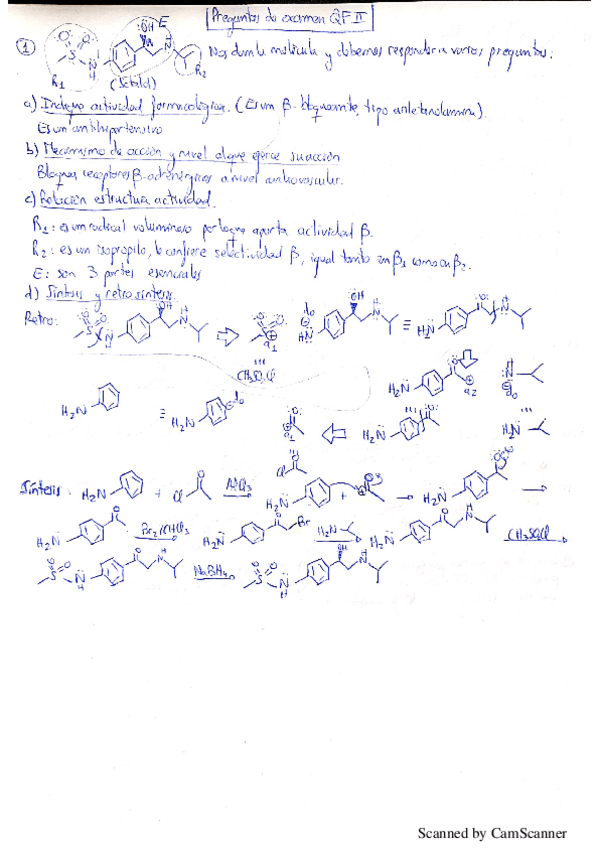 Preguntas de examen QF II
① Nos dan la molécula y debemos responder a varias preguntas:
E
OH
R1 (Sotalol) R2
a) Indique actividad farmacológica. (Es un β-bloqueante, tipo ariletanolamina).
Es un antihipertensivo
b) Mecanismo de acción y nivel al que ejerce su acción
Bloquea receptores β-adrenérgicos a nivel cardiovascular.
c) Relación estructura actividad.
R1: es un radical voluminoso por lo que aporta actividad β.
R2: es un isopropilo, le confiere selectividad β, igual tanto en β1 como en β2.
E: son 3 partes esenciales
d) Síntesis y retrosíntesis.
Retro:
CH3SO2Cl
H2N
Síntesis:
H2N + Cl AlCl3
H2N Br2/CHCl3 H2N Br H2N H2N CH3SO2Cl
NaBH4
Scanned by CamScanner